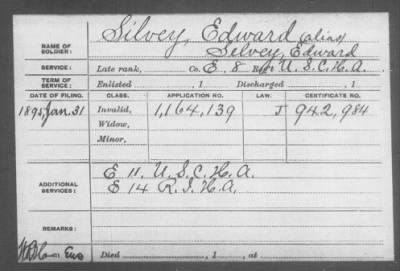 Silvey, Edward (alias)
NAME OF SOLDIER: Selvey, Edward
SERVICE: Late rank, Co. E. 8 Reg't U. S. C. H. A.
TERM OF SERVICE: Enlisted , 1 Discharged , 1
DATE OF FILING. CLASS. APPLICATION NO. LAW. CERTIFICATE NO.
1895, Jan. 31 Invalid, 1,164,139 J 942,984
Widow,
Minor,
ADDITIONAL SERVICES: E 11. U. S. C. H. A.
E 14 R. I. H. A.
REMARKS:
Died , 1 , at